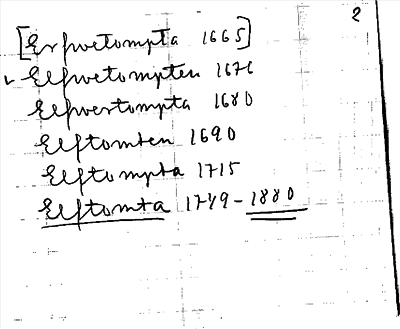 2
[Erfvetompta 1665]
Elfvetompten 1676
Elfvestompta 1680
Elftomten 1690
Elftompta 1715
Elftomta 1749-1880